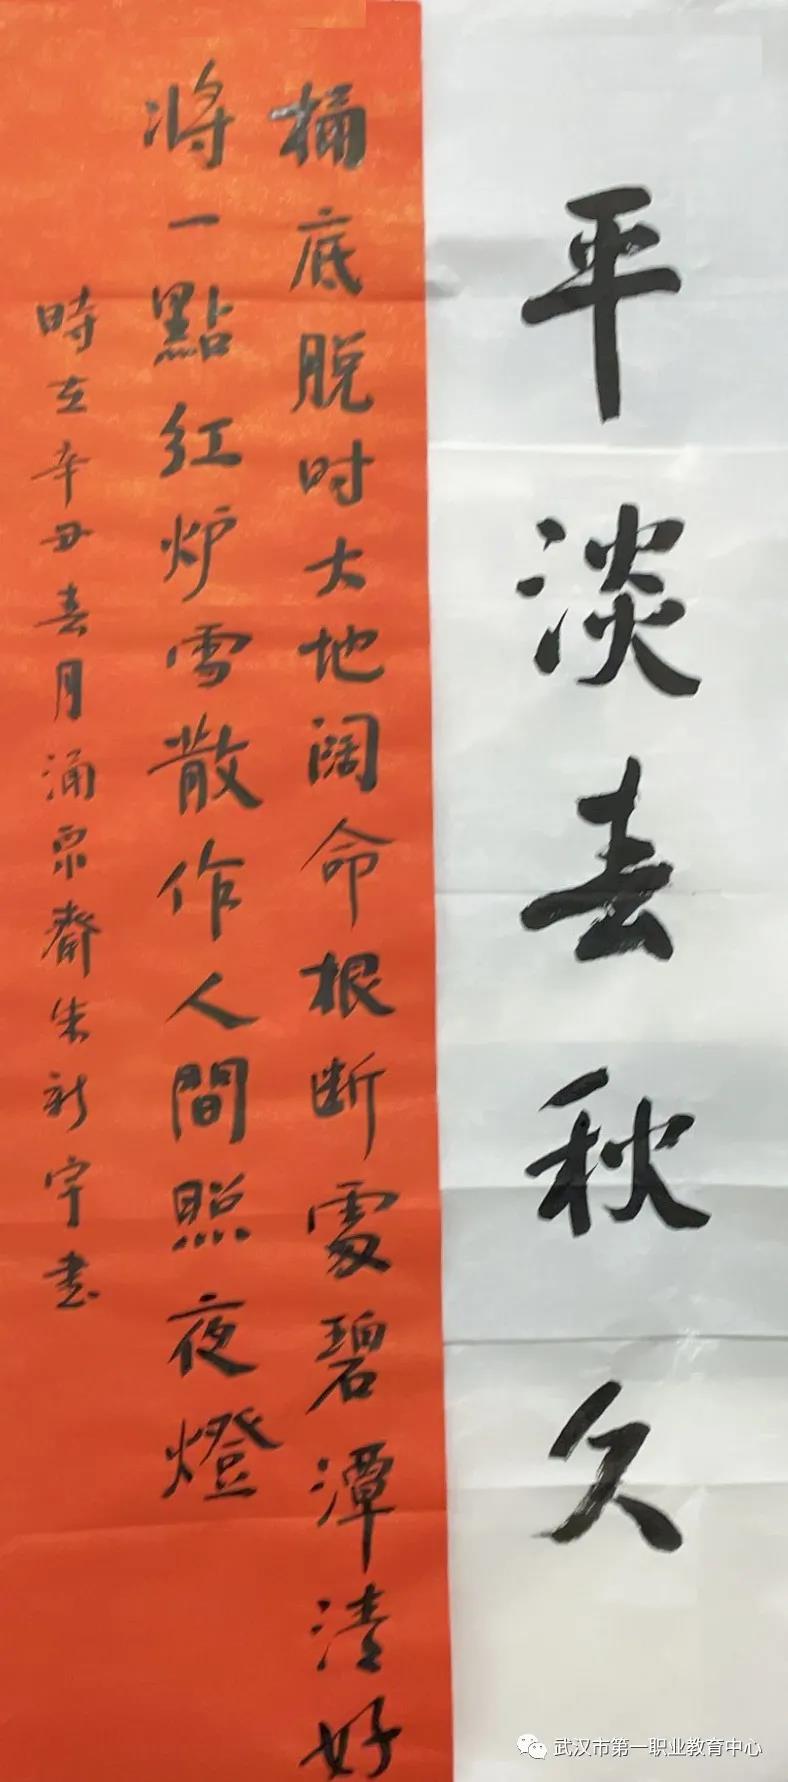 平淡春秋久
桶底脱时大地阔命根断處碧潭清好
将一點红炉雪散作人間照夜燈
時在辛丑春月涌泉齋朱新宇書
武汉市第一职业教育中心